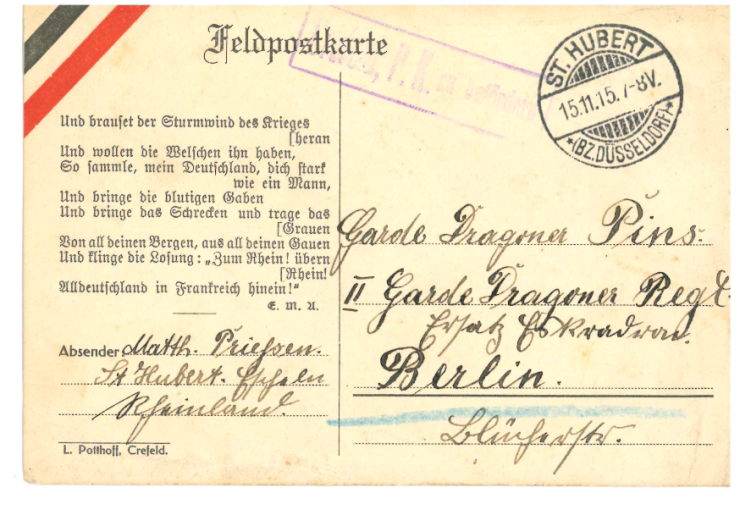 Feldpostkarte
P. K.
ST. HUBERT
15.11.15. 7-8V.
*(BZ. DÜSSELDORF)*
Und brauset der Sturmwind des Krieges
[heran
Und wollen die Welschen ihn haben,
So sammle, mein Deutschland, dich stark
wie ein Mann,
Und bringe die blutigen Gaben
Und bringe das Schrecken und trage das
[Grauen
Von all deinen Bergen, aus all deinen Gauen
Und klinge die Losung: „Zum Rhein! übern
[Rhein!
Alldeutschland in Frankreich hinein!"
E. M. A.
Absender, Matth.
St Hubert.
Rheinland.
L. Potthoff, Crefeld.
Garde Dragoner Pins.
II Garde Dragoner Regt.
Ersatz Eskradron.
Berlin.
Blücherstr.